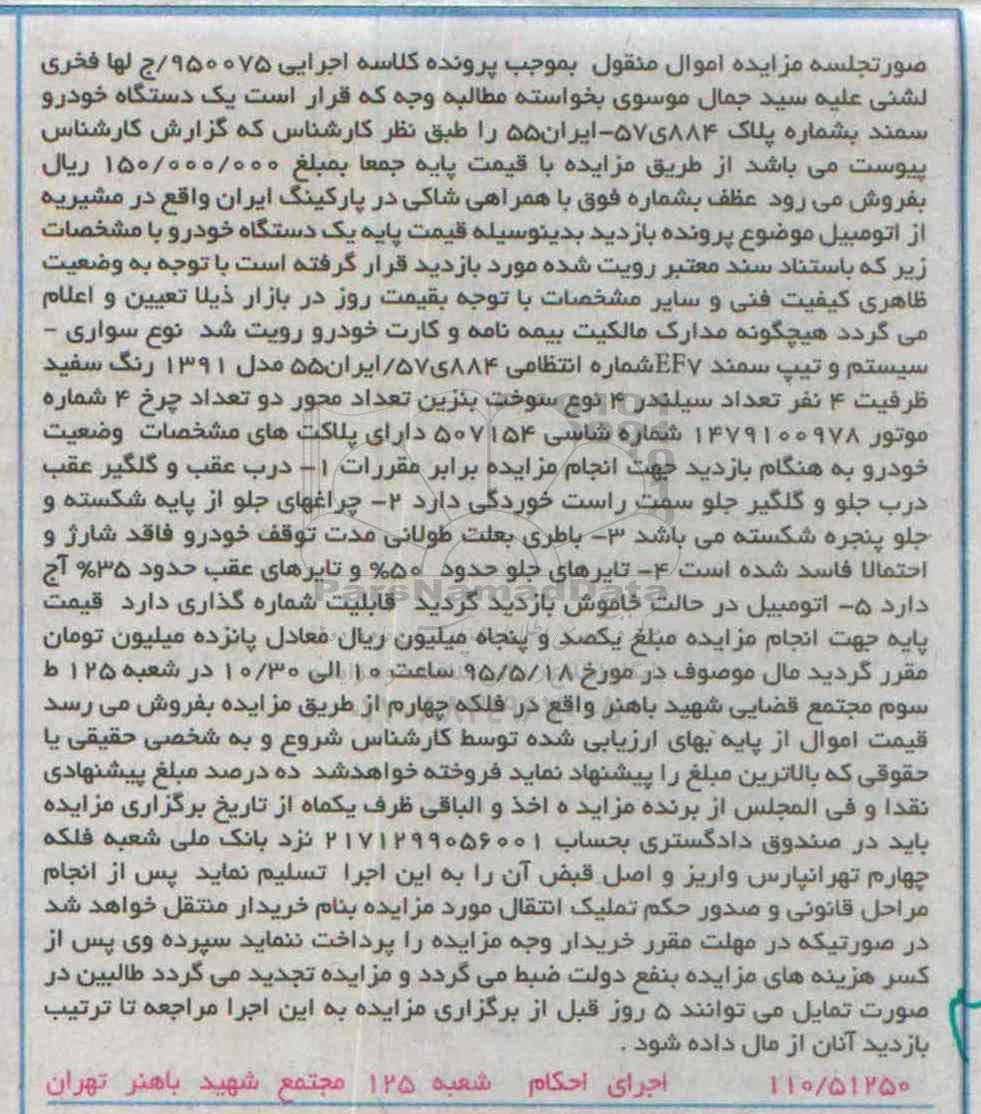 صورتجلسه مزایده اموال منقول بموجب پرونده کلاسه اجرایی ۹۵۰۰۷۵/ج لها فخری
لشنی علیه سید جمال موسوی بخواسته مطالبه وجه که قرار است یک دستگاه خودرو
سمند بشماره پلاک ۸۸۴ی۵۷-ایران۵۵ را طبق نظر کارشناس که گزارش کارشناس
پیوست می باشد از طریق مزایده با قیمت پایه جمعا بمبلغ ۱۵۰/۰۰۰/۰۰۰ ریال
بفروش می رود عظف بشماره فوق با همراهی شاکی در پارکینگ ایران واقع در مشیریه
از اتومبیل موضوع پرونده بازدید بدینوسیله قیمت پایه یک دستگاه خودرو با مشخصات
زیر که باستناد سند معتبر رویت شده مورد بازدید قرار گرفته است با توجه به وضعیت
ظاهری کیفیت فنی و سایر مشخصات با توجه بقیمت روز در بازار ذیلا تعیین و اعلام
می گردد هیچگونه مدارک مالکیت بیمه نامه و کارت خودرو رویت شد نوع سواری -
سیستم و تیپ سمند EF۷شماره انتظامی ۸۸۴ی۵۷/ایران۵۵ مدل ۱۳۹۱ رنگ سفید
ظرفیت ۴ نفر تعداد سیلندر ۴ نوع سوخت بنزین تعداد محور دو تعداد چرخ ۴ شماره
موتور ۱۴۷۹۱۰۰۹۷۸ شماره شاسی ۵۰۷۱۵۴ دارای پلاکت های مشخصات وضعیت
خودرو به هنگام بازدید جهت انجام مزایده برابر مقررات ۱- درب عقب و گلگیر عقب
درب جلو و گلگیر جلو سمت راست خوردگی دارد ۲- چراغهای جلو از پایه شکسته و
جلو پنجره شکسته می باشد ۳- باطری بعلت طولانی مدت توقف خودرو فاقد شارژ و
احتمالا فاسد شده است ۴- تایرهای جلو حدود ۵۰% و تایرهای عقب حدود ۳۵% آج
دارد ۵- اتومبیل در حالت خاموش بازدید گردید قابلیت شماره گذاری دارد قیمت
پایه جهت انجام مزایده مبلغ یکصد و پنجاه میلیون ریال معادل پانزده میلیون تومان
مقرر گردید مال موصوف در مورخ ۹۵/۵/۱۸ ساعت ۱۰ الی ۱۰/۳۰ در شعبه ۱۲۵ ط
سوم مجتمع قضایی شهید باهنر واقع در فلکه چهارم از طریق مزایده بفروش می رسد
قیمت اموال از پایه بهای ارزیابی شده توسط کارشناس شروع و به شخصی حقیقی یا
حقوقی که بالاترین مبلغ را پیشنهاد نماید فروخته خواهدشد ده درصد مبلغ پیشنهادی
نقدا و فی المجلس از برنده مزاید ه اخذ و الباقی ظرف یکماه از تاریخ برگزاری مزایده
باید در صندوق دادگستری بحساب ۲۱۷۱۲۹۹۰۵۶۰۰۱ نزد بانک ملی شعبه فلکه
چهارم تهرانپارس واریز و اصل قبض آن را به این اجرا تسلیم نماید پس از انجام
مراحل قانونی و صدور حکم تملیک انتقال مورد مزایده بنام خریدار منتقل خواهد شد
در صورتیکه در مهلت مقرر خریدار وجه مزایده را پرداخت ننماید سپرده وی پس از
کسر هزینه های مزایده بنفع دولت ضبط می گردد و مزایده تجدید می گردد طالبین در
صورت تمایل می توانند ۵ روز قبل از برگزاری مزایده به این اجرا مراجعه تا ترتیب
بازدید آنان از مال داده شود .
۱۱۰/۵۱۲۵۰ اجرای احکام شعبه ۱۲۵ مجتمع شهید باهنر تهران
ParsNamadData